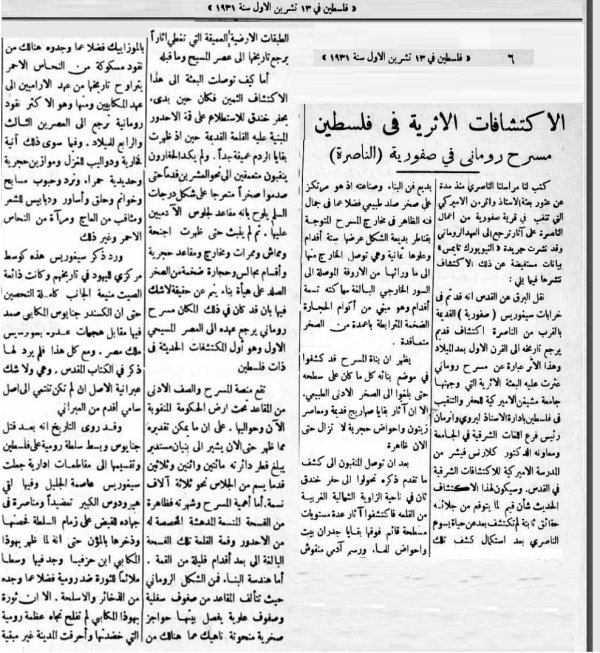 ٦ « فلسطين في ١٣ تشرين الاول سنة ١٩٣١ »
الاكتشافات الاثرية في فلسطين
مسرح روماني في صفورية (الناصرة)
كتب لنا مراسلنا الناصري منذ مدة
عن عثور بعثة الاستاذ واترمن الاميركي
التي تنقب في قرية صفورية من اعمال
الناصرة على آثار ترجع الى العهد الروماني
وقد نشرت جريدة «النيويورك تايمس»
بيانات مستفيضة عن ذلك الاكتشاف
نقل البرق عن القدس انه قد تم في
خرابات سيفوريس (صفورية) القديمة
بالقرب من الناصرة اكتشاف قديم
يرجع تاريخه الى القرن الاول بعد الميلاد
وهذا الأثر عبارة عن مسرح روماني
عثرت عليه البعثة الاثرية التي وجهتها
جامعة مشيغن الاميركية للحفر والتنقيب
في فلسطين بادارة الاستاذ ليروي واترمان
رئيس فرع اللغات الشرقية في الجامعة
ومعاونه الدكتور كلارنس فيشر من
المدرسة الاميركية للاكتشافات الشرقية
في القدس. وسيكون لهذا الاكتشاف
الحديث شأن قيم لما يتوقع من جلائه
حقائق ثابتة لم تكتشف بعد عن حياة يسوع
الناصري بعد استكمال كشف تلك
بديع فن البناء وصناعته اذ هو مرتكز
على صخر صلد طبيعي فضلا عما في جمال
فنه الظاهر في مخارج المسرح المتوجة
بقناطر بديعة الشكل عرضها ستة أقدام
وعلوها ثمانية وهي توصل الخارج منها
الى ما ورائها من الاروقة الموصلة الى
السور الخارجي البالغة سماكته تسعة
أقدام وهو مبني من أكوام الحجارة
الضخمة المترابطة باعمدة من الصخر
متصافدة.
يظهر ان بناة المسرح قد كشفوا
في موضع بنائه كل ما كان على سطحه
حتى بلغوا الى الصخر الادنى الطبيعي.
الا ان آثار بقايا صهاريج قديمة ومعاصر
زيتون واحواض حجرية لا تزال حتى
الان ظاهرة
بعد ان توصل المنقبون الى كشف
ما تقدم ذكره تحولوا الى حفر خندق
ثان في ناحية الزاوية الشمالية الغربية
من القلعة فاكتشفوا آثار عدة مستويات
مسطحة قائم فوقها بقايا جدران بيت
واحواض للماء. ورسم آدمي منقوش
« فلسطين في ١٣ تشرين الاول سنة ١٩٣١ »
الطبقات الارضية العميقة التي تغطي آثاراً
يرجع تاريخها الى عصر المسيح وما قبله
أما كيف توصلت البعثة الى هذا
الاكتشاف الثمين فكان حين بدىء
بحفر خندق للاستطلاع على قمة الاحدور
المبنية عليه القلعة القديمة حين اذ ظهرت
بقايا الردم عميقة جداً. ولم يكد الحفارون
ينقبون متعمقين الى نحو العشرين قدما حتى
صدموا صخراً متعرجا على شكل درجات
السلم يلوح بانه مقاعد لجلوس الآدميين
عليها. ثم لم يلبث حتى ظهرت اجنحة
ومماش وممرات ومخارج ومقاعد حجرية
وأقسام مجالس وحجارة ضخمة من الصخر
الصلد على هيأة بناء ينم عن حقيقة لا شك
فيها بان قد كان في ذلك المكان مسرح
روماني يرجع عهده الى العصر المسيحي
الاول وهو أول المكتشفات الحديثة في
ذات فلسطين
تقع منصة المسرح والصف الادنى
من المقاعد تحت ارض الحكومة المنقوبة
الآن وحواليها. على ان ما يمكن تقديره
مما ظهر حتى الان يشير الى بنيان مستدير
يبلغ قطر دائرته مائتين واثنين وثلاثين
قدما يسع من الجلاس نحو ثلاثة آلاف
نسمة. أما أهمية المسرح وشهرته فظاهرة
من الفسحة المتسعة المدهشة المخصصة له
من الاحدور وقمة القلعة تلك الفسحة
البالغة الى بعد أقدام قليلة من القمة.
أما هندسة البناء فمن الشكل الروماني
حيث تتألف المقاعد من صفوف سفلية
وصفوف علوية يفصل بينها حواجز
صخرية منحوتة ناهيك عما هنالك من
بالموزابيك فضلا عما وجدوه هنالك من
نقود مسكوكة من النحاس الاحمر
يتراوح تاريخها من عهد الآراميين الى
عهد المكابيين ومنها وهو الاكثر نقود
رومانية ترجع الى العصرين الثالث
والرابع للميلاد. وفيما سوى ذلك آنية
فخارية ودواليب الغزل وموازين حجرية
وحديدية حمراء ونرد وحبوب مسابح
وخواتم وحلق وأساور ودبابيس للشعر
ومثاقب من العاج ومرآة من النحاس
الاحمر وغير ذلك
ورد ذكر سيفوريس هذه كوسط
مركزي لليهود في تاريخهم وكانت ذائعة
الصيت منيعة الجانب كاملة التحصين
حتى ان الكسندر جنايوس المكابي صد
فيها مقابل هجمات عدوه بتوليميس
ملك مصر. ومع كل هذا فلم يرد لها
ذكر في الكتاب المقدس. وهي ولا شك
عبرانية الاصل ان لم تكن تنتمي الى اصل
سامي أقدم من العبراني
وقد روى التاريخ انه بعد قتل
جنايوس وبسط سلطة رومية على فلسطين
وتقسيمها الى مقاطعات ادارية جعلت
سيفوريس عاصمة الجليل وفيها التي
هيرودوس الكبير تعضيداً ومناصرة في
جهاده للقبض على زمام السلطة فحصنها
وذخرها بالمؤن حتى انه لما ظهر يهوذا
المكابي ابن حزقيا وجد فيها وسطا
ملائما للثورة ضد رومية فضلا عما وجده
من الذخائر والاسلحة. الا ان ثورة
يهوذا المكابي لم تفلح تجاه عظمة رومية
التي خضدتها وأحرقت المدينة غير مبقية